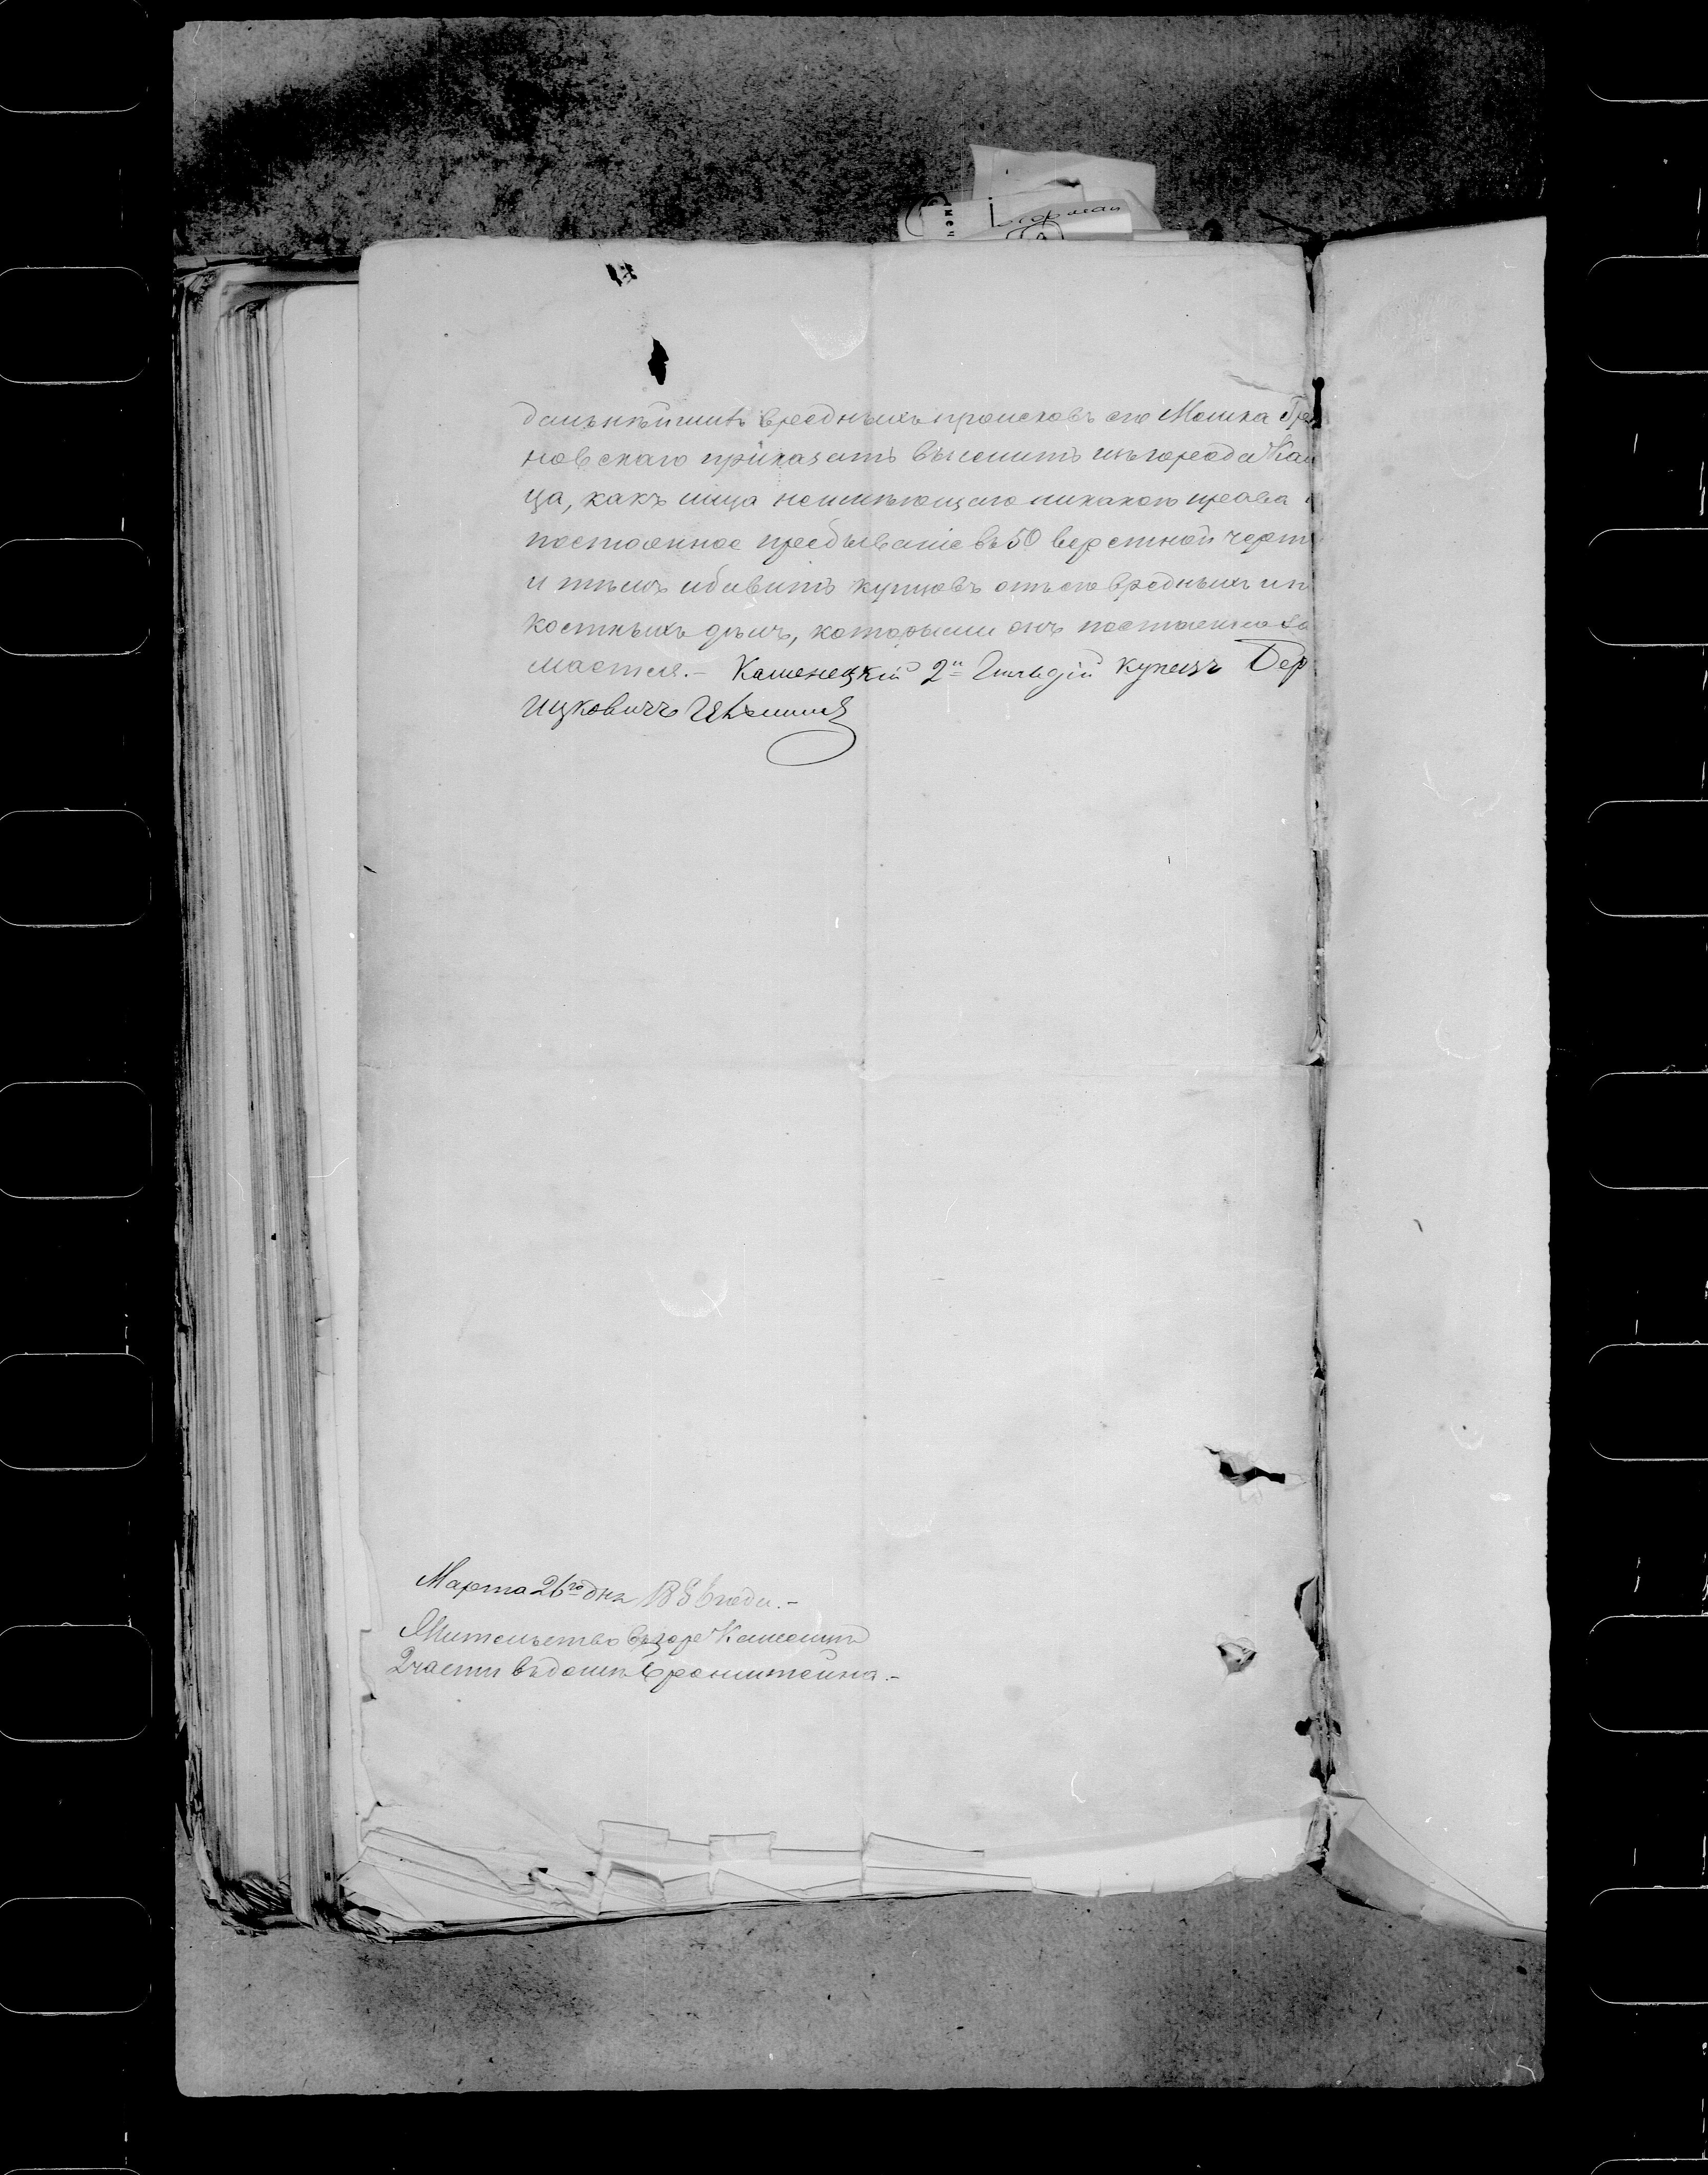 дальнѣйшихъ вредныхъ происковъ его Мошка Гра
новскаго приказать выселить изъ города Каме
ца, какъ лица неимѣющаго никакого права
постоянное пребываніе въ 50 верстной черт
и тѣмъ избавить купцовъ отъ его вредныхъ и п
костныхъ дѣлъ, которыми онъ постоянно за
мается.- Каменецкій 2й Гильдіи купецъ Бер
Ицковичъ
Марта 26го дня 1886 года.-
Жительство въ горо Каменцѣ
2 части въ домѣ Бронштейна.-